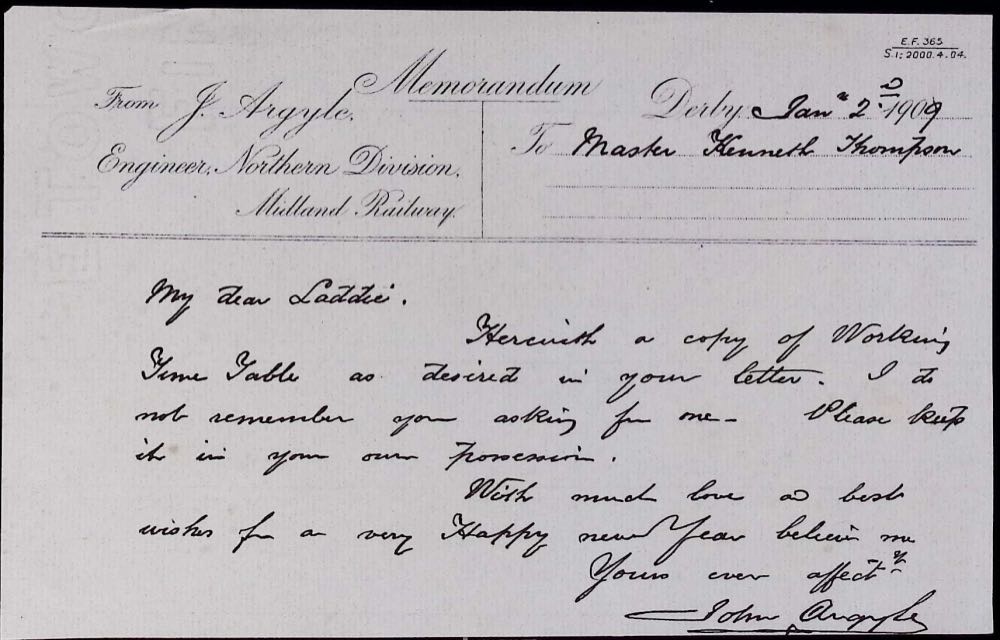 E.F. 365
S.I; 2000.4.04.
Memorandum
From J. Argyle,
Engineer, Northern Division,
Midland Railway.
Derby, Jany 2nd 1909
To Master Kenneth Thompson
My dear Laddie.
Herewith a copy of Working
Time Table as desired in your letter. I do
not remember you asking for one - Please keep
it in your own possession.
With much love & best
wishes for a very Happy new Year believe me
Yours ever affectly
John Argyle